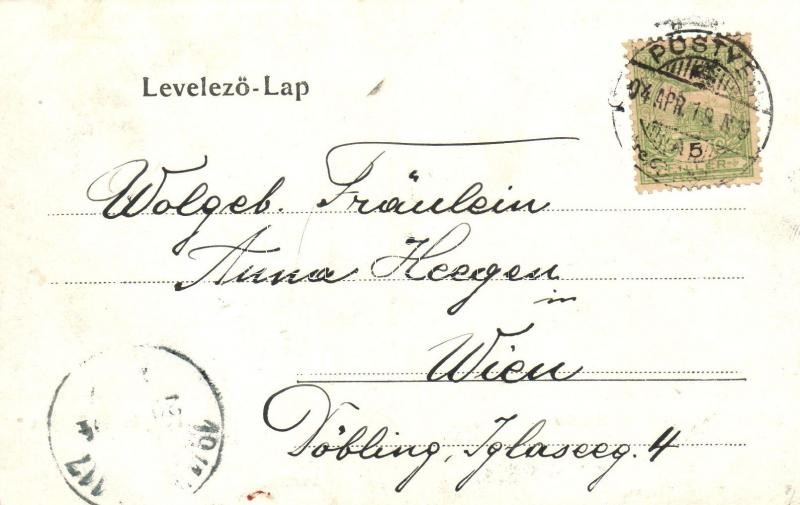 Levelező-Lap
POSTVE
04 APR. 19 N 9
5
Wolgeb. Fräulein
Anna Heegen
in
Wien
Döbling, Iglaseeg. 4